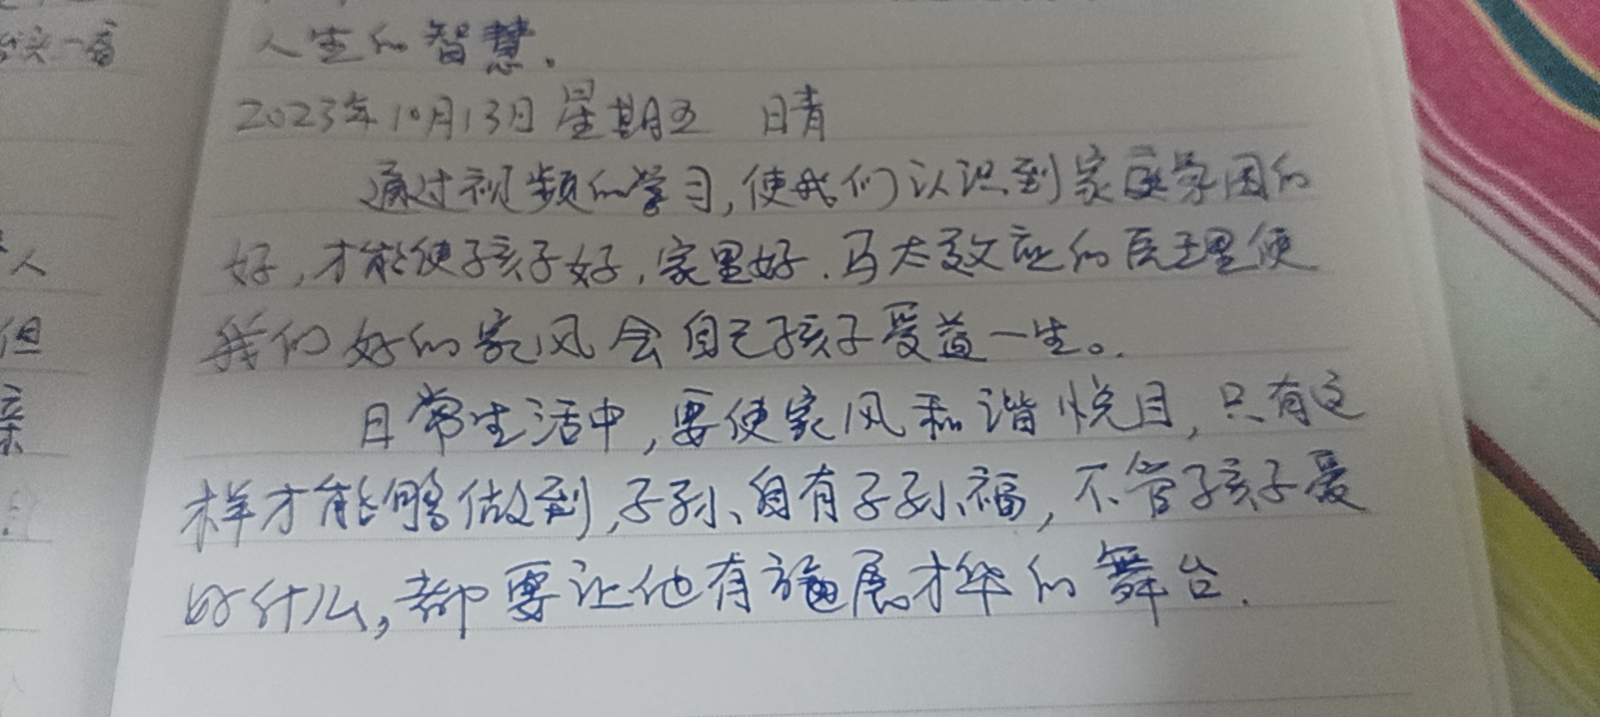 台实一看
人生的智慧.
2023年10月13日 星期五 日晴
通过视频的学习,使我们认识到家庭氛围的
好,才能使孩子好,家里好.马太效应的原理使
人
我们好的家风会自己孩子受益一生。
但
日常生活中,要使家风和谐悦目,只有这
亲
样才能够做到,子孙、自有子孙福,不管孩子爱
好什么,都要让他有施展才华的舞台.